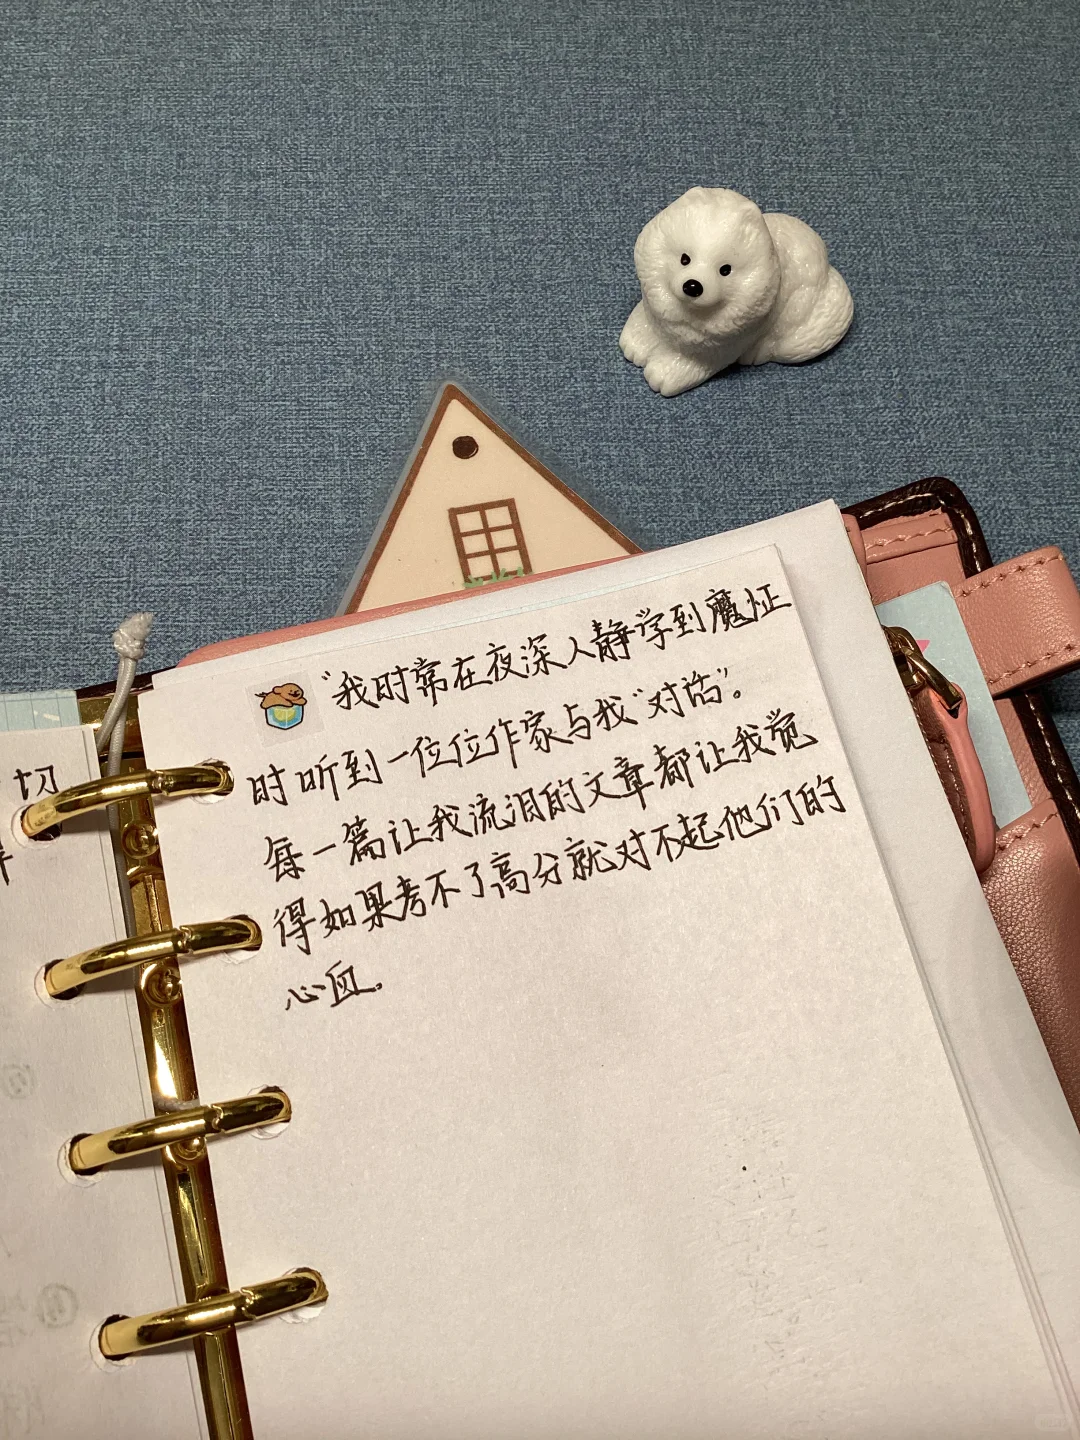 切
"我时常在夜深人静学到魔怔
时听到一位位作家与我"对话"。
每一篇让我流泪的文章都让我觉
得如果考不了高分就对不起他们的
心血。